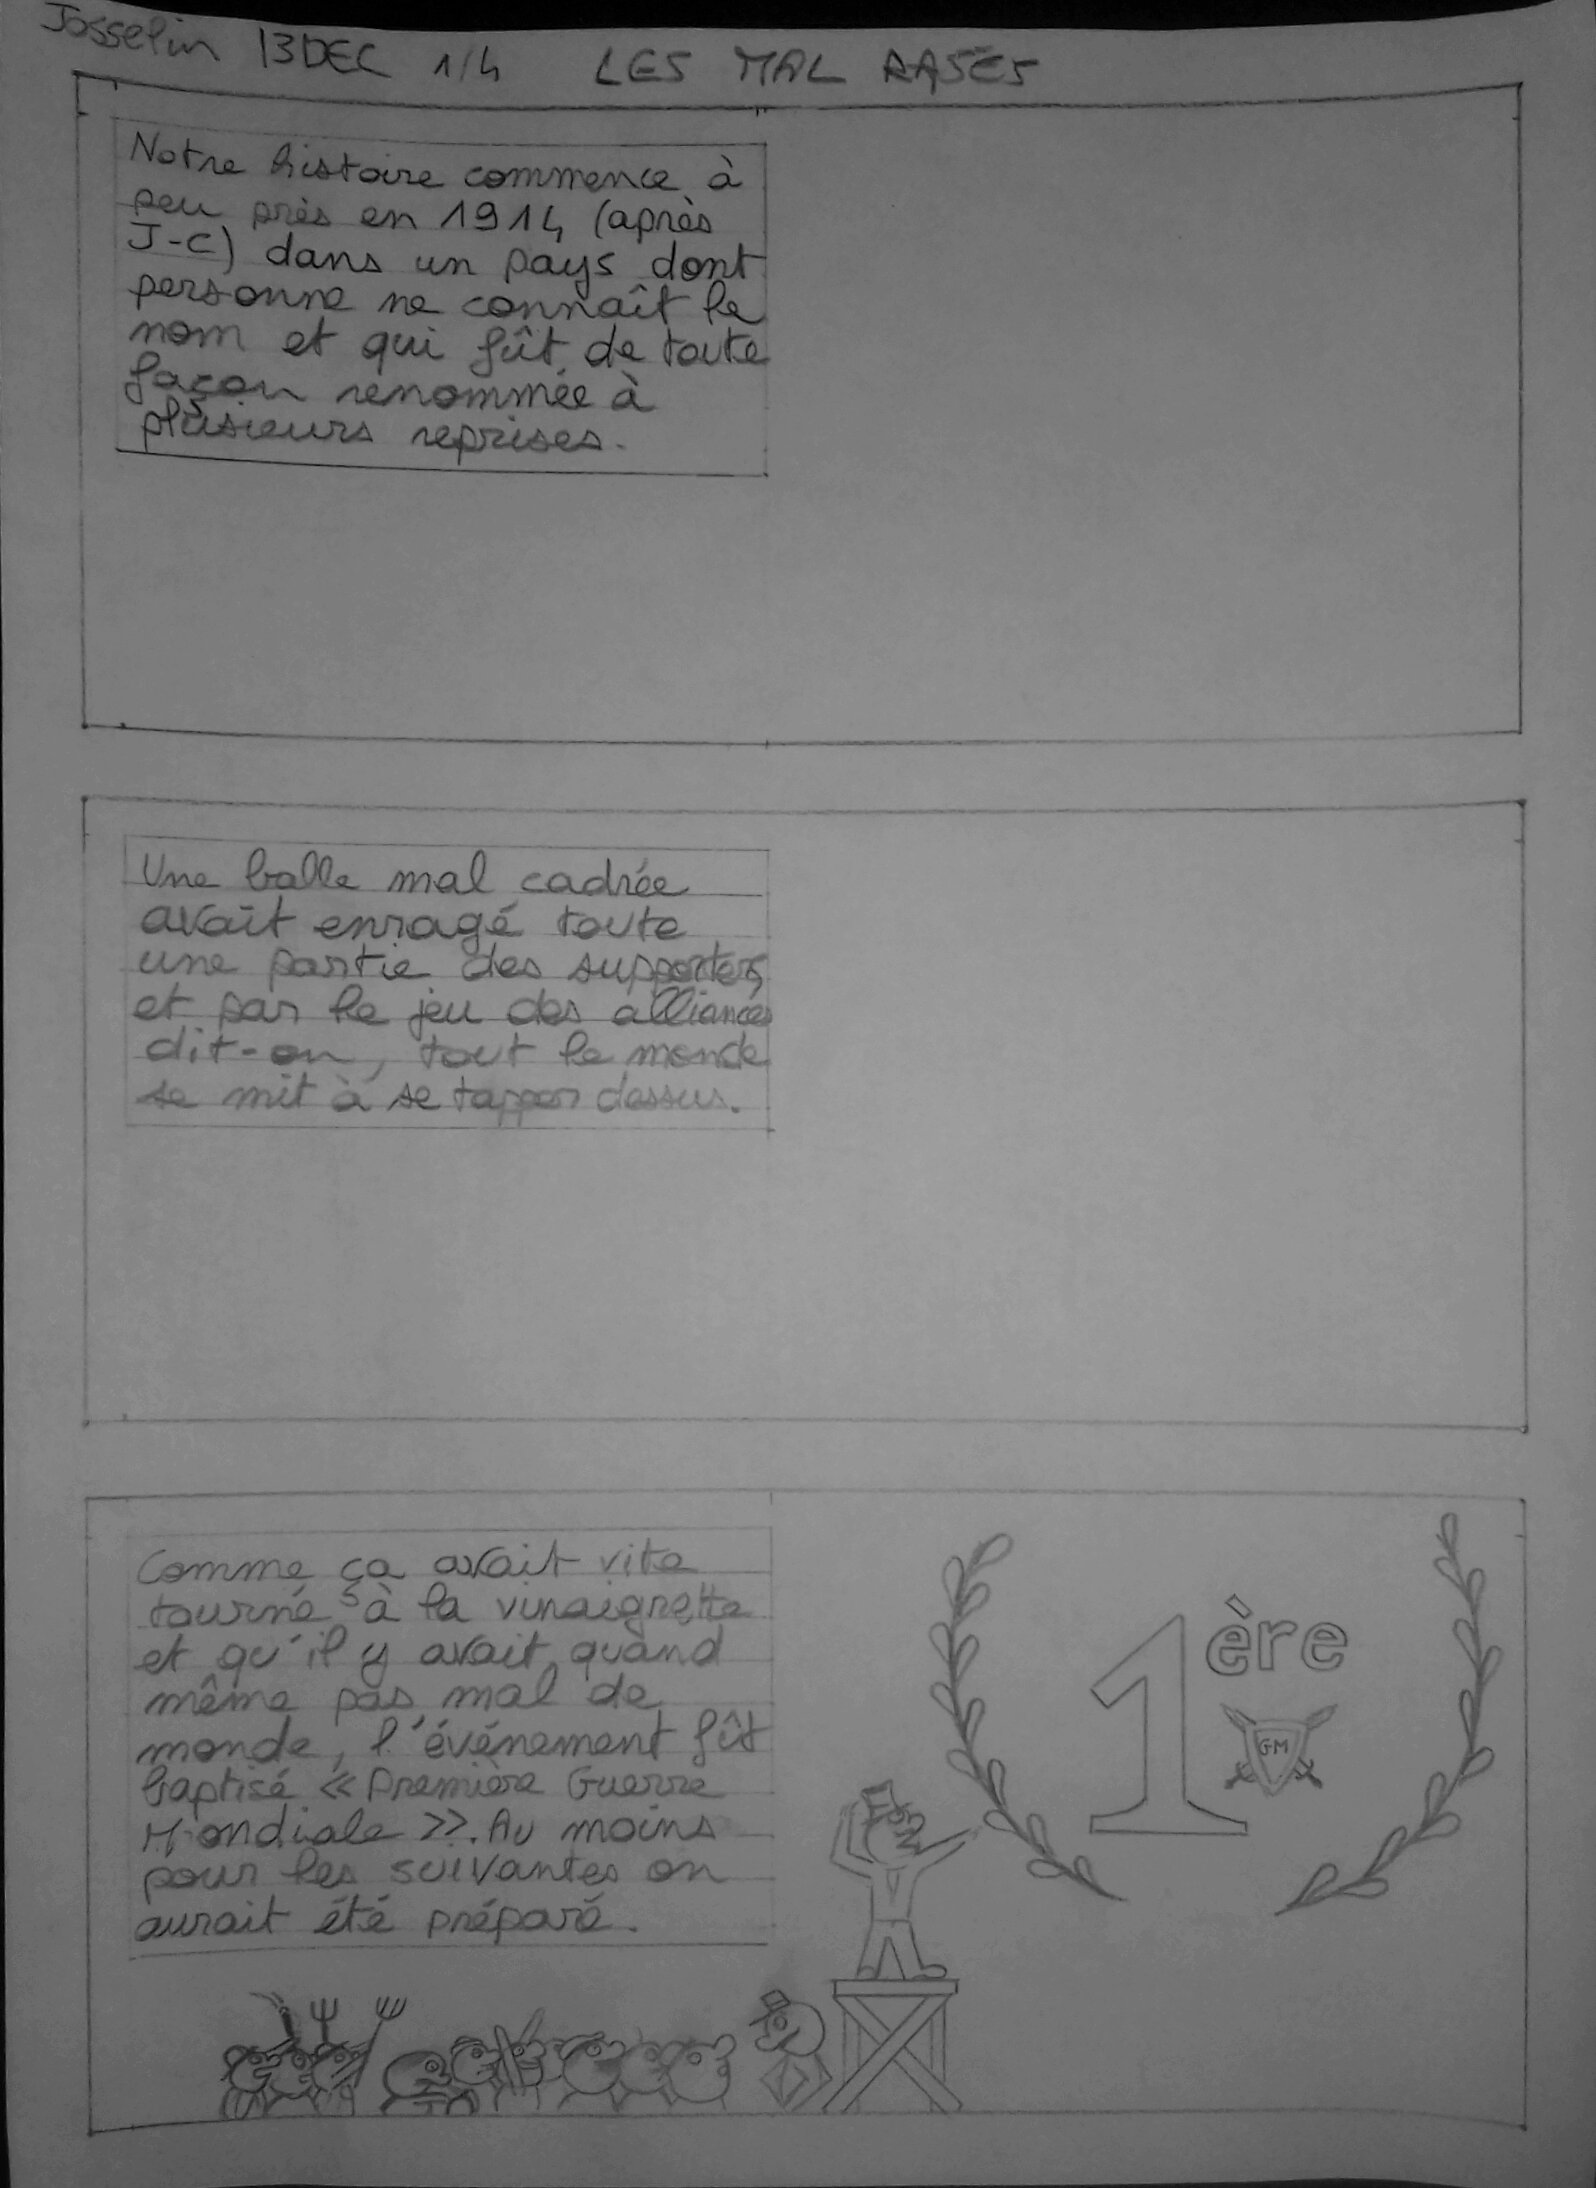 Josselin 13DEC 1/4 LES MAL RASÉS
Notre histoire commence à
peu près en 1914 (après
J-C) dans un pays dont
personne ne connaît le
nom et qui fût de toute
façon renommée à
plusieurs reprises.
Une balle mal cadrée
avait enragé toute
une partie des supporters,
et par le jeu des alliances
dit-on, tout le monde
se mit à se tapper dessus.
Comme ça avait vite
tourné à la vinaigrette
et qu'il y avait quand
même pas mal de
monde, l'événement fût
baptisé « Première Guerre
Mondiale ». Au moins
pour les suivantes on
aurait été préparé.
1ère
GM